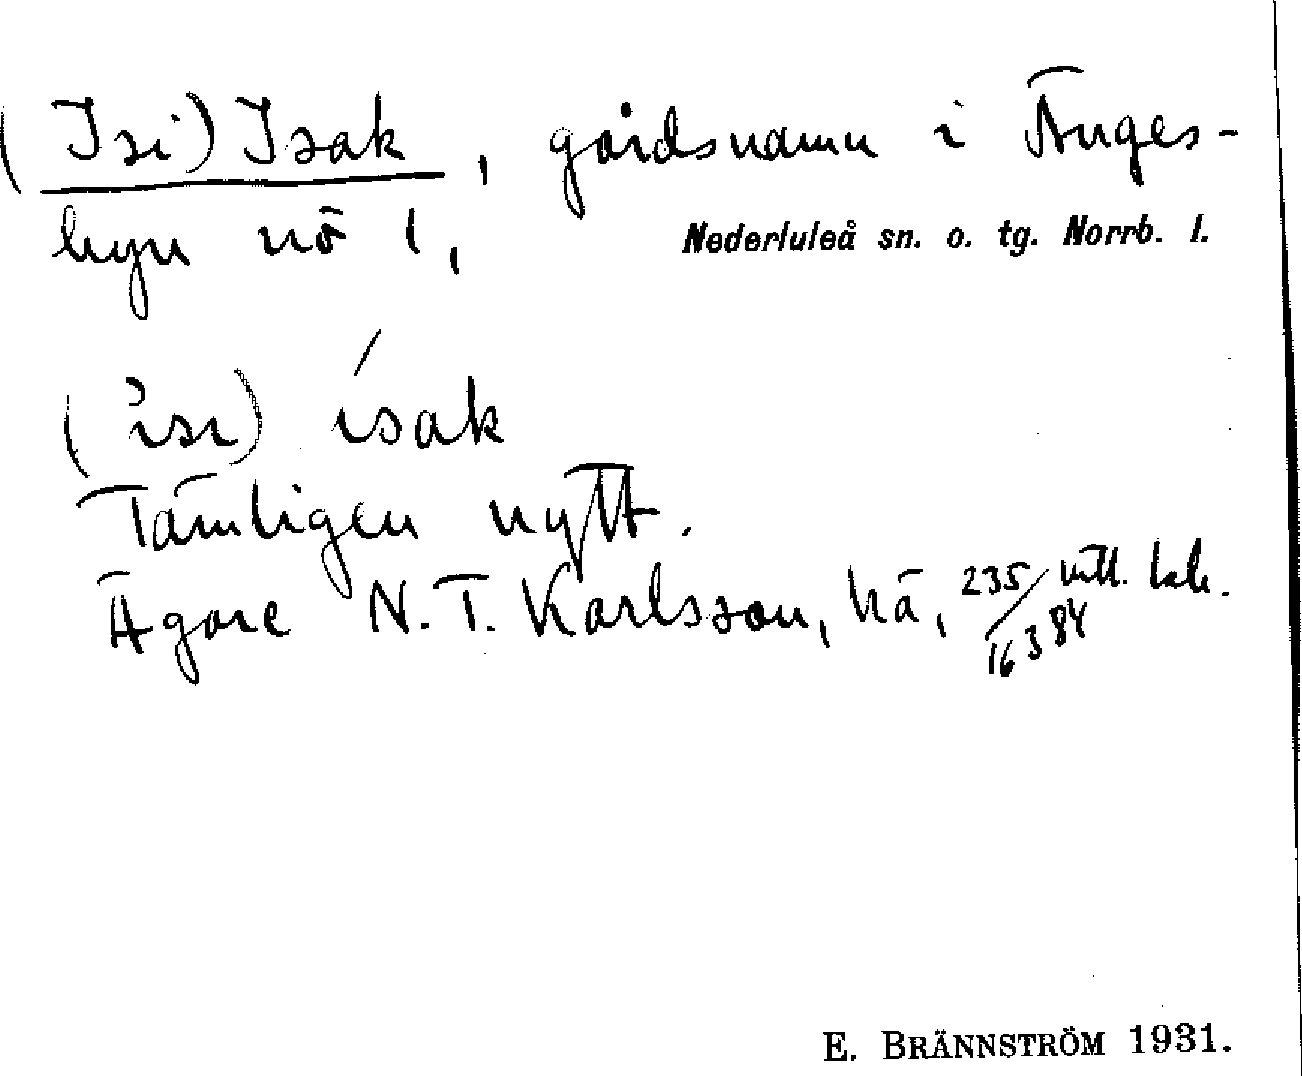 (Isi) Isak, gårdsnamn i Änges-
byn nö 1,
Nederluleå sn. o. tg. Norrb. l.
(ísi) ísak
Tämligen nytt.
Ägare N. T. Karlsson, hä, 235/16384 mtl. sk.
E. BRÄNNSTRÖM 1931.